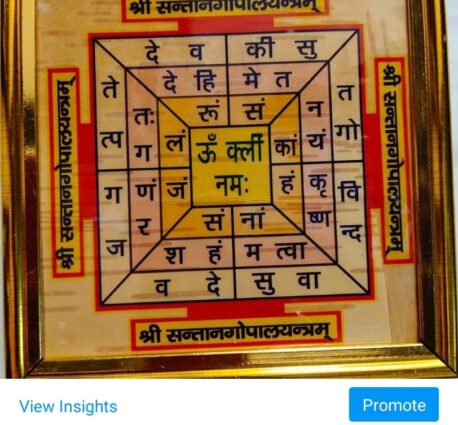 श्री सन्तानगोपालयन्त्रम्
दे व की सु
दे हि मे त
रूं सं
ते
त्प
ग
ज
तः
ग
णं
र
लं
जं
ऊँ क्लीं
नमः
कां
हं
न
यं
कृ
ष्ण
त
गो
वि
न्द
सं नां
श हं म त्वा
व दे सु वा
श्री सन्तानगोपालयन्त्रम्
श्री सन्तानगोपालयन्त्रम्
श्री सन्तानगोपालयन्त्रम्
View Insights
Promote